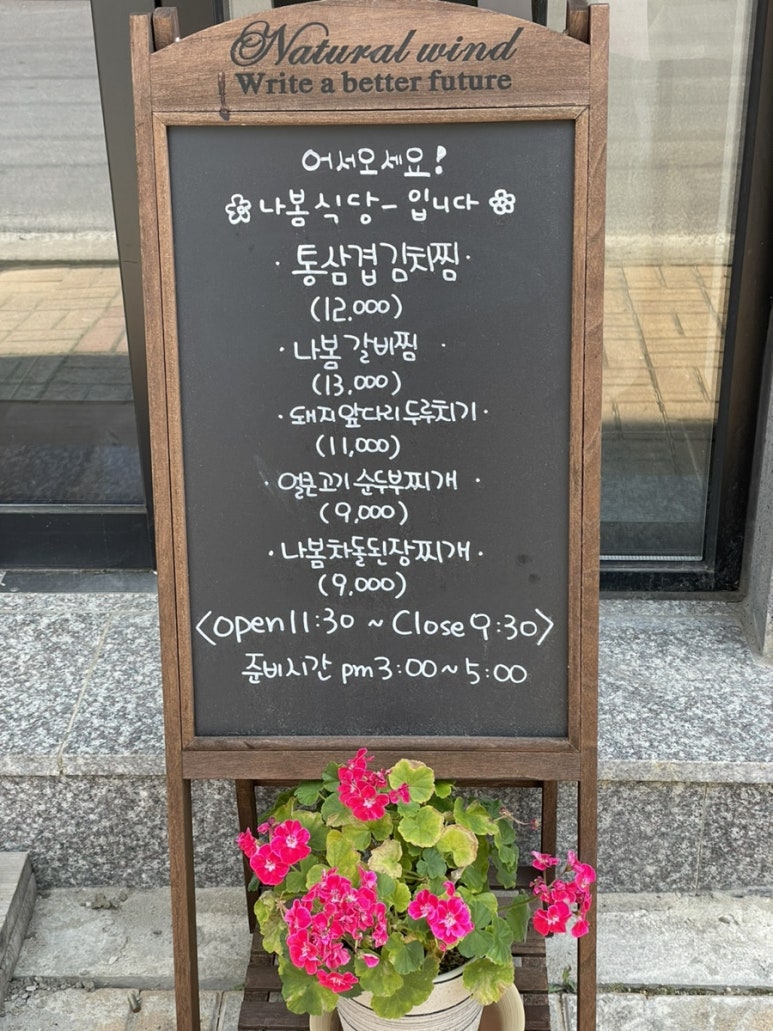 Natural wind
Write a better future
어서오세요!
나봄식당-입니다
·통삼겹김치찜·
(12,000)
·나봄갈비찜·
(13,000)
·돼지앞다리두루치기·
(11,000)
·얼큰고기순두부찌개·
(9,000)
·나봄차돌된장찌개·
(9,000)
<open 11:30 ~ Close 9:30>
준비시간 pm 3:00~5:00